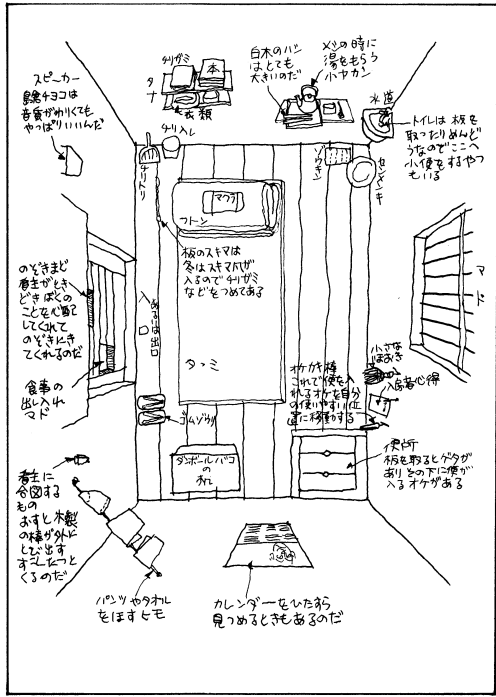 スピーカー
島倉チヨコは
音質がわりくても
やっぱりいいんだ
チリガミ
本
タナ
衣類
白木のハシ
はとても
大きいのだ
メシの時に
湯をもらう
小ヤカン
水道
トイレは板を
取ったりめんど
うなのでここへ
小便をするやつ
もいる
チリトリ
チリ入レ
ゾウキン
センメンキ
マクラ
フトン
板のスキマは
冬はスキマ風が
入るのでチリガミ
などをつめてある
のぞきまど
看主がとき
どきぼくの
ことを心配
してくれて
のぞきにき
てくれるのだ
入口
あるいは出口
マド
食事の
出し入れ
マド
タタミ
オケカキ棒
これで便を入
れるオケを自分
の使いやすい位
置に移動する
小さな
ほおき
入房者心得
ゴムゾウリ
ダンボールバコ
の
机
便所
板を取るとゲタが
ありその下に便が
入るオケがある
看主に
合図する
もの
おすと木製
の棒が外に
とび出す
すこしたつと
くるのだ
パンツやタオル
をほすヒモ
カレンダーをひたすら
見つめるときもあるのだ